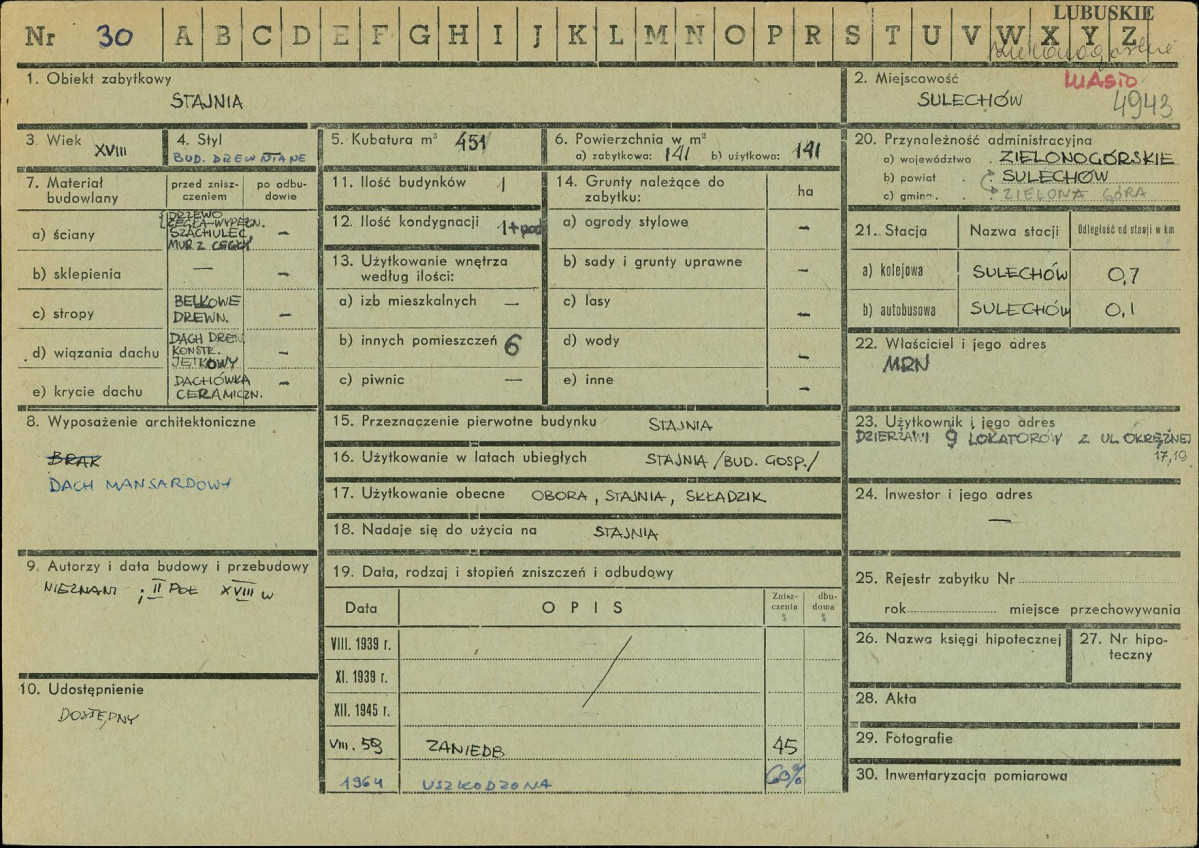 LUBUSKIE
Nr 30 A B C D E F G H I J K L M N O P R S T U V W X Y Z
1. Obiekt zabytkowy
STAJNIA
2. Miejscowość
MIASTO
SULECHÓW 4943
3. Wiek
XVIII
4. Styl
BUD. DREWNIANE
5. Kubatura m³ 451
6. Powierzchnia w m²
a) zabytkowa: 141 b) użytkowa: 141
7. Materiał budowlany
przed zniszczeniem
po odbudowie
a) ściany
DRZEWO
CEGŁA-WYPEŁN.
SZACHULEC
MUR Z CEGŁY
-
b) sklepienia — -
c) stropy
BELKOWE
DREWN.
-
d) wiązania dachu
DACH DREW.
KONSTR.
JĘTKOWY
-
e) krycie dachu
DACHÓWKA
CERAMICZN.
-
8. Wyposażenie architektoniczne
BRAK
DACH MANSARDOWY
9. Autorzy i data budowy i przebudowy
NIEZNANI ; II POŁ XVIII w
10. Udostępnienie
DOSTĘPNY
11. Ilość budynków 1
12. Ilość kondygnacji 1+pod
13. Użytkowanie wnętrza
według ilości:
a) izb mieszkalnych —
b) innych pomieszczeń 6
c) piwnic —
14. Grunty należące do
zabytku:
ha
a) ogrody stylowe -
b) sady i grunty uprawne -
c) lasy -
d) wody -
e) inne -
15. Przeznaczenie pierwotne budynku STAJNIA
16. Użytkowanie w latach ubiegłych STAJNIA /BUD. GOSP./
17. Użytkowanie obecne OBORA, STAJNIA, SKŁADZIK
18. Nadaje się do użycia na STAJNIA
19. Data, rodzaj i stopień zniszczeń i odbudowy
Data OPIS
Zniszczenia %
dbudowa %
VIII. 1939 r.
XI. 1939 r.
XII. 1945 r.
VIII. 59 ZANIEDB 45
1964 USZKODZONA 60%
20. Przynależność administracyjna
a) województwo . ZIELONOGÓRSKIE
b) powiat . SULECHÓW
c) gmina . ZIELONA GÓRA
21. Stacja Nazwa stacji Odległość od stacji w km
a) kolejowa SULECHÓW 0,7
b) autobusowa SULECHÓW 0,1
22. Właściciel i jego adres
MRN
23. Użytkownik i jego adres
DZIERŻAWI 9 LOKATORÓW Z UL OKRĘŻNEJ
17,19.
24. Inwestor i jego adres
—
25. Rejestr zabytku Nr
rok miejsce przechowywania
26. Nazwa księgi hipotecznej
27. Nr hipoteczny
28. Akta
29. Fotografie
30. Inwentaryzacja pomiarowa